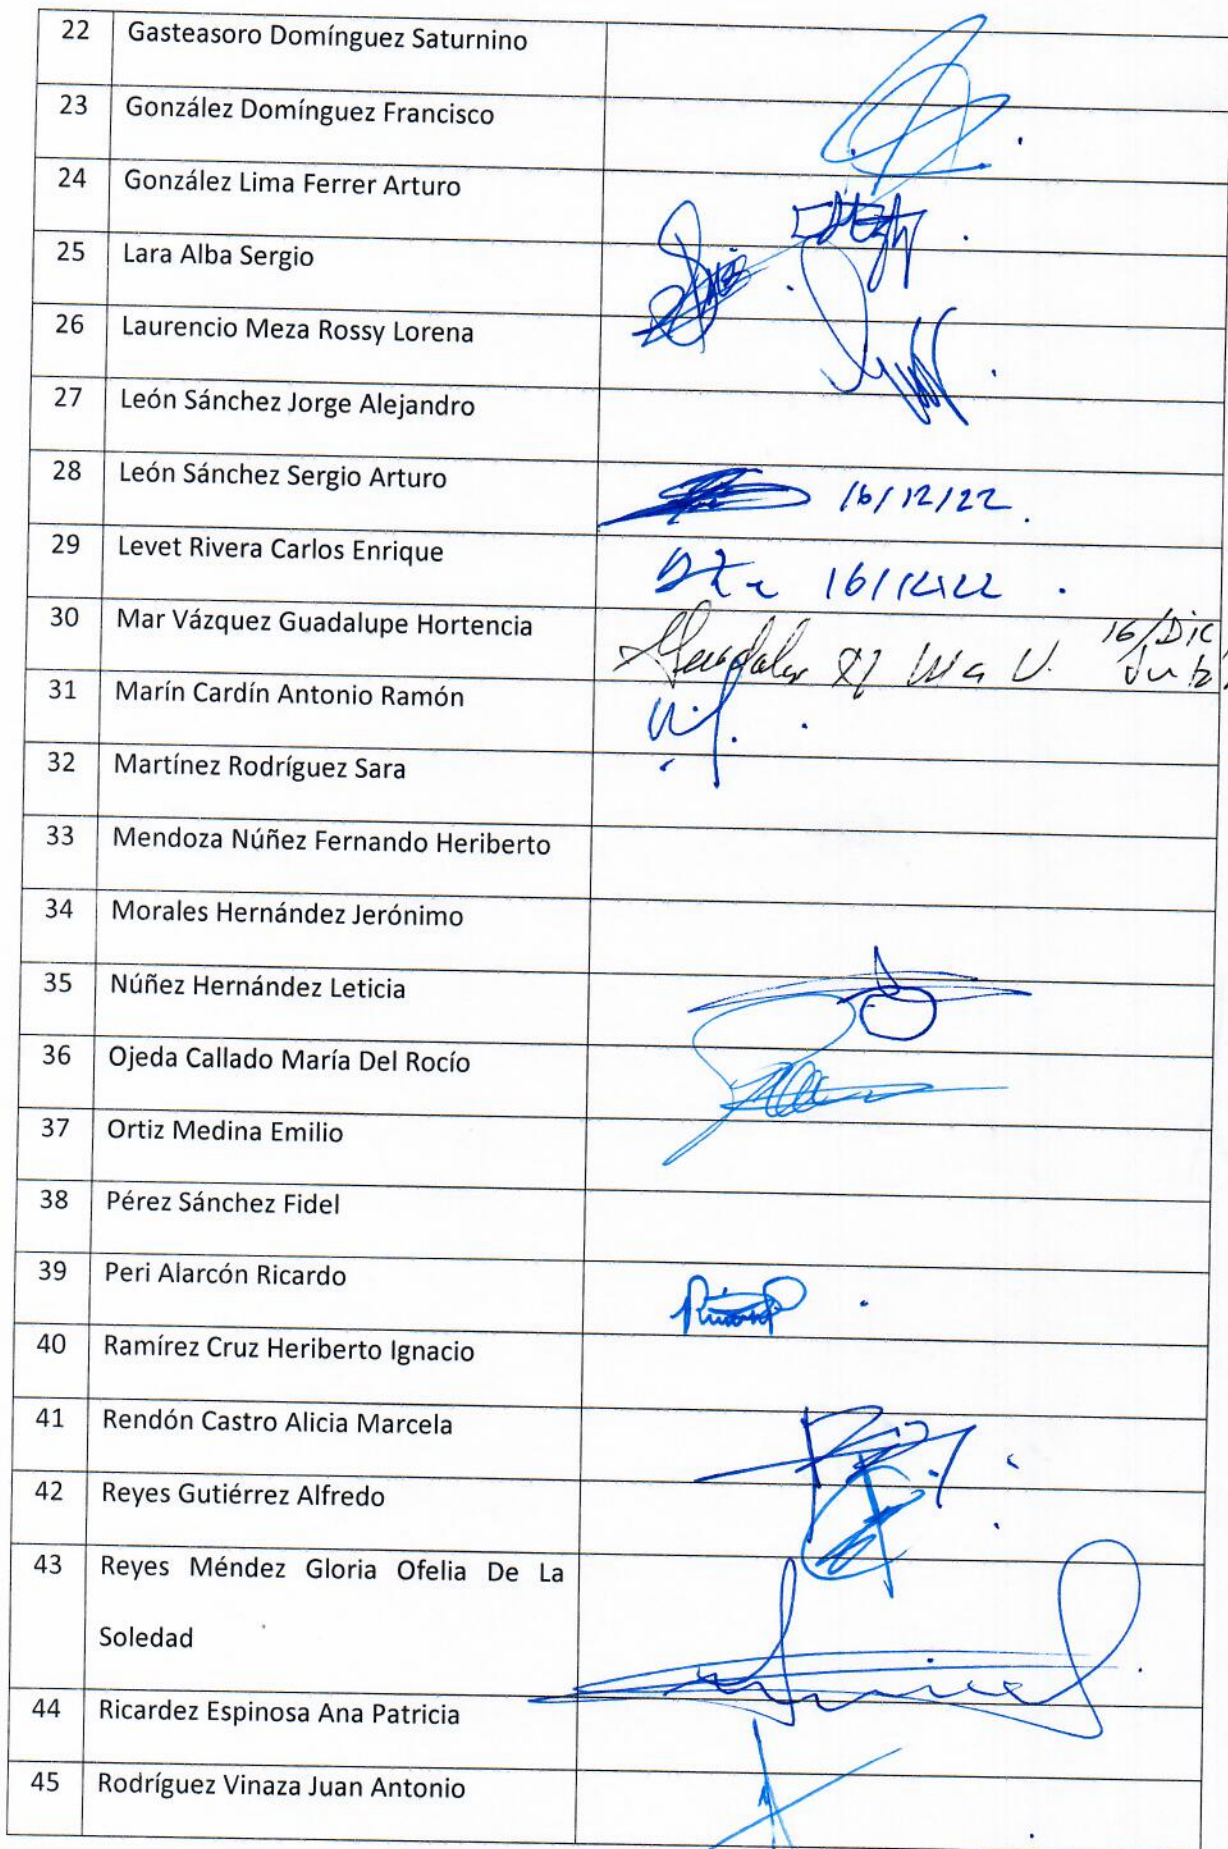 22 Gasteasoro Domínguez Saturnino
23 González Domínguez Francisco
24 González Lima Ferrer Arturo
25 Lara Alba Sergio
26 Laurencio Meza Rossy Lorena
27 León Sánchez Jorge Alejandro
28 León Sánchez Sergio Arturo 16/12/22.
29 Levet Rivera Carlos Enrique
30 Mar Vázquez Guadalupe Hortencia 16/Dic
31 Marín Cardín Antonio Ramón
32 Martínez Rodríguez Sara
33 Mendoza Núñez Fernando Heriberto
34 Morales Hernández Jerónimo
35 Núñez Hernández Leticia
36 Ojeda Callado María Del Rocío
37 Ortiz Medina Emilio
38 Pérez Sánchez Fidel
39 Peri Alarcón Ricardo
40 Ramírez Cruz Heriberto Ignacio
41 Rendón Castro Alicia Marcela
42 Reyes Gutiérrez Alfredo
43 Reyes Méndez Gloria Ofelia De La
Soledad
44 Ricardez Espinosa Ana Patricia
45 Rodríguez Vinaza Juan Antonio